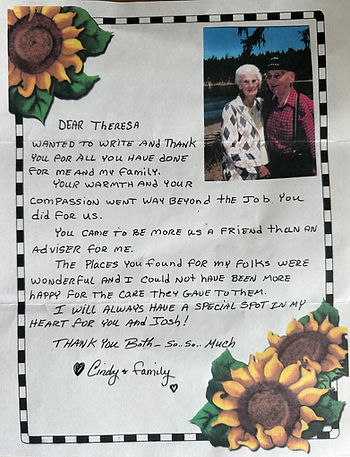 DEAR THERESA
WANTED TO WRITE AND THANK
YOU FOR ALL YOU HAVE DONE
FOR ME AND MY FAMILY.
YOUR WARMTH AND YOUR
COMPASSION WENT WAY BEYOND THE JOB YOU
DID FOR US.
YOU CAME TO BE MORE AS A FRIEND THAN AN
ADVISER FOR ME.
THE PLACES YOU FOUND FOR MY FOLKS WERE
WONDERFUL AND I COULD NOT HAVE BEEN MORE
HAPPY FOR THE CARE THEY GAVE TO THEM.
I WILL ALWAYS HAVE A SPECIAL SPOT IN MY
HEART FOR YOU AND JOSH!
THANK YOU BOTH - SO.. SO.. MUCH
Cindy & Family